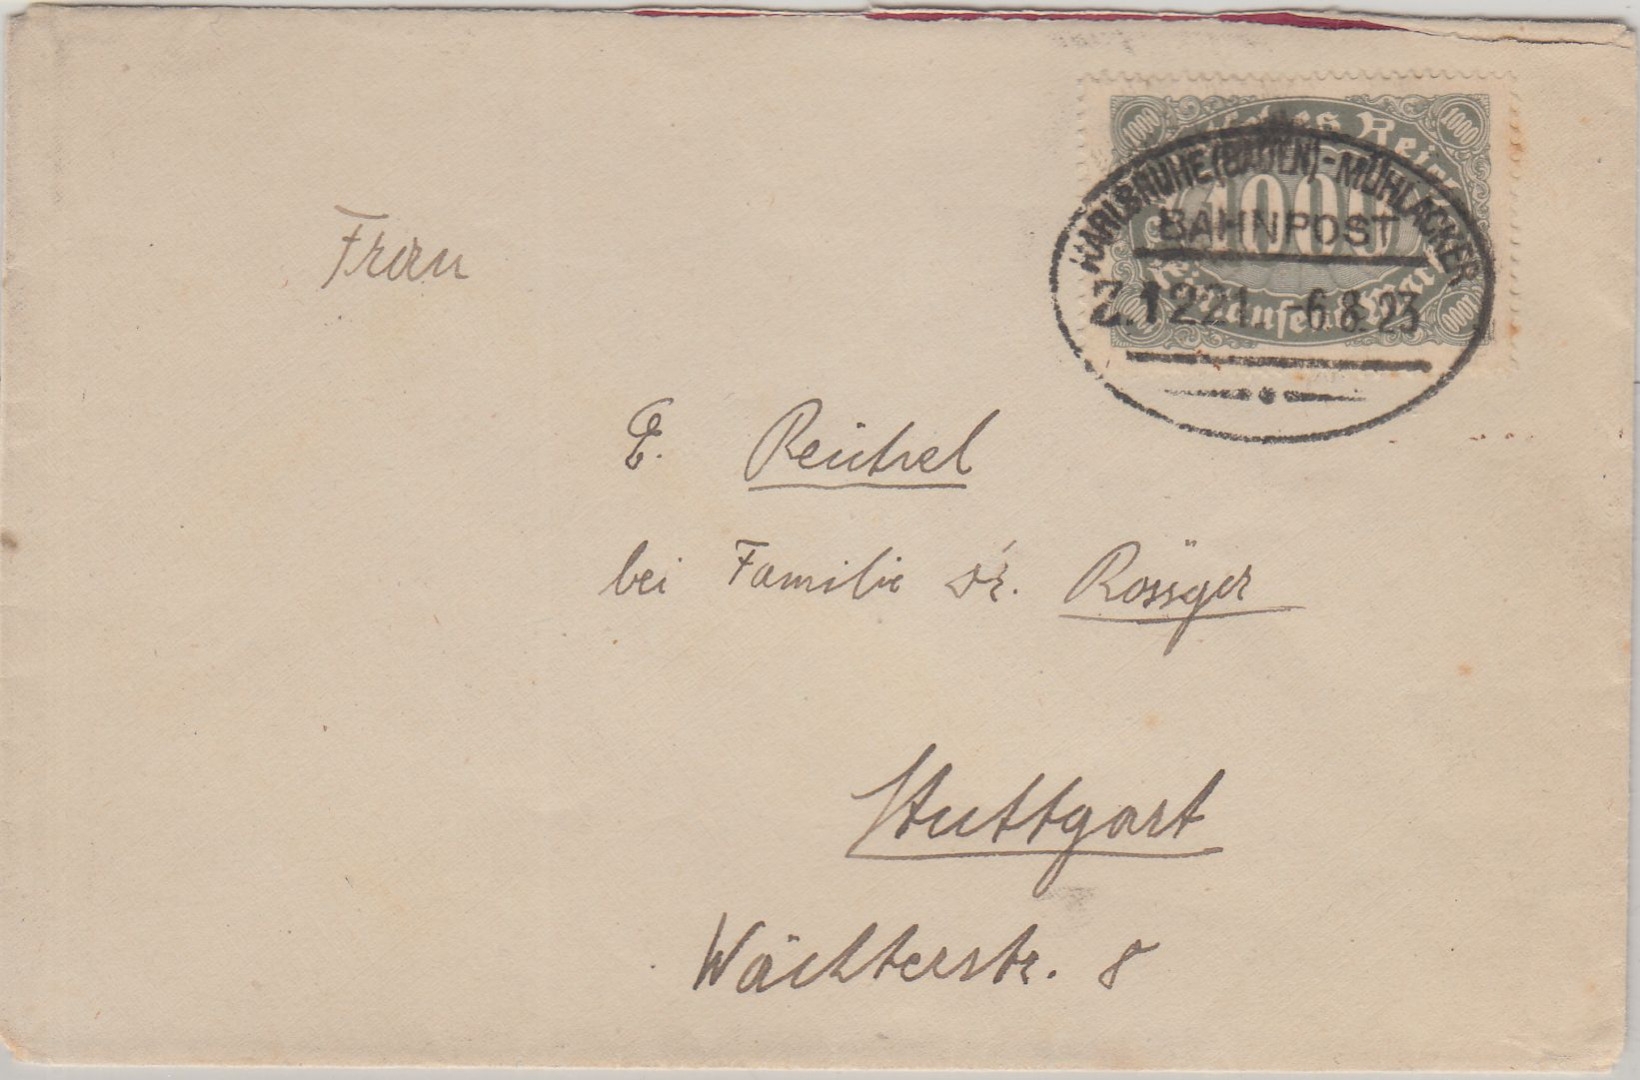 Deutsches Reich
1000 1000
1000
Tausend Mark
1000 1000
KARLSRUHE (BADEN) - MÜHLACKER
BAHNPOST
Z.1221. -6.8.23
Frau
E. Reutrel
bei Familie Dr. Rössger
Stuttgart
Wächterstr. 8